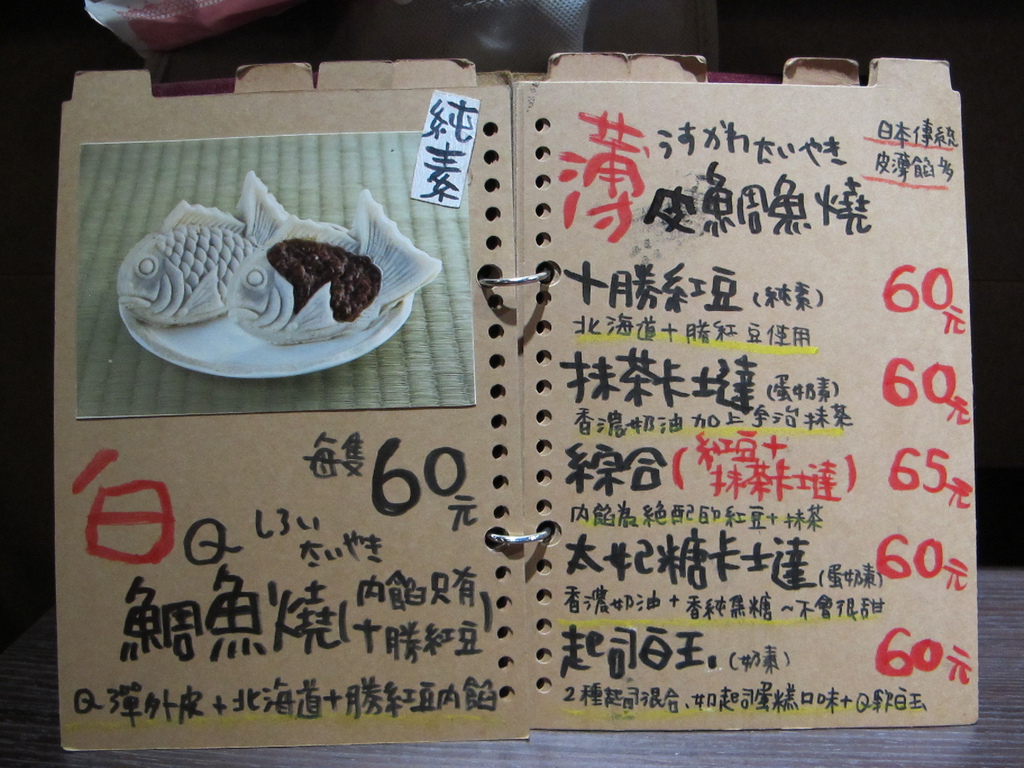 純素
每隻60元
白Q しろい
たいやき
鯛魚燒(內餡只有
十勝紅豆)
Q彈外皮+北海道十勝紅豆內餡
日本傳統
皮薄餡多
薄 うすかわたいやき
皮鯛魚燒
十勝紅豆(純素) 60元
北海道十勝紅豆使用
抹茶卡士達(蛋奶素) 60元
香濃奶油加上宇治抹茶
綜合(紅豆+
抹茶卡士達) 65元
內餡為絕配的紅豆+抹茶
太妃糖卡士達(蛋奶素) 60元
香濃奶油+香純焦糖~不會很甜
起司白玉.(奶素) 60元
2種起司混合、如起司蛋糕口味+Q軟白玉